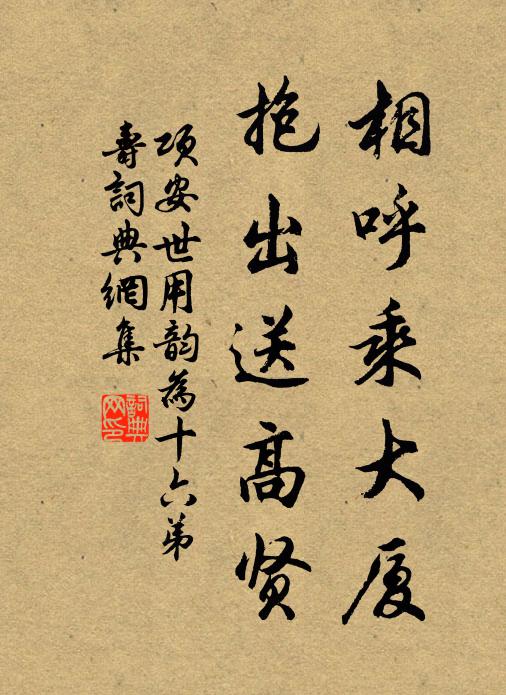 相呼乘大厦
抱出送高贤
项安世用韵为十六弟
寿词典网集
词典网印